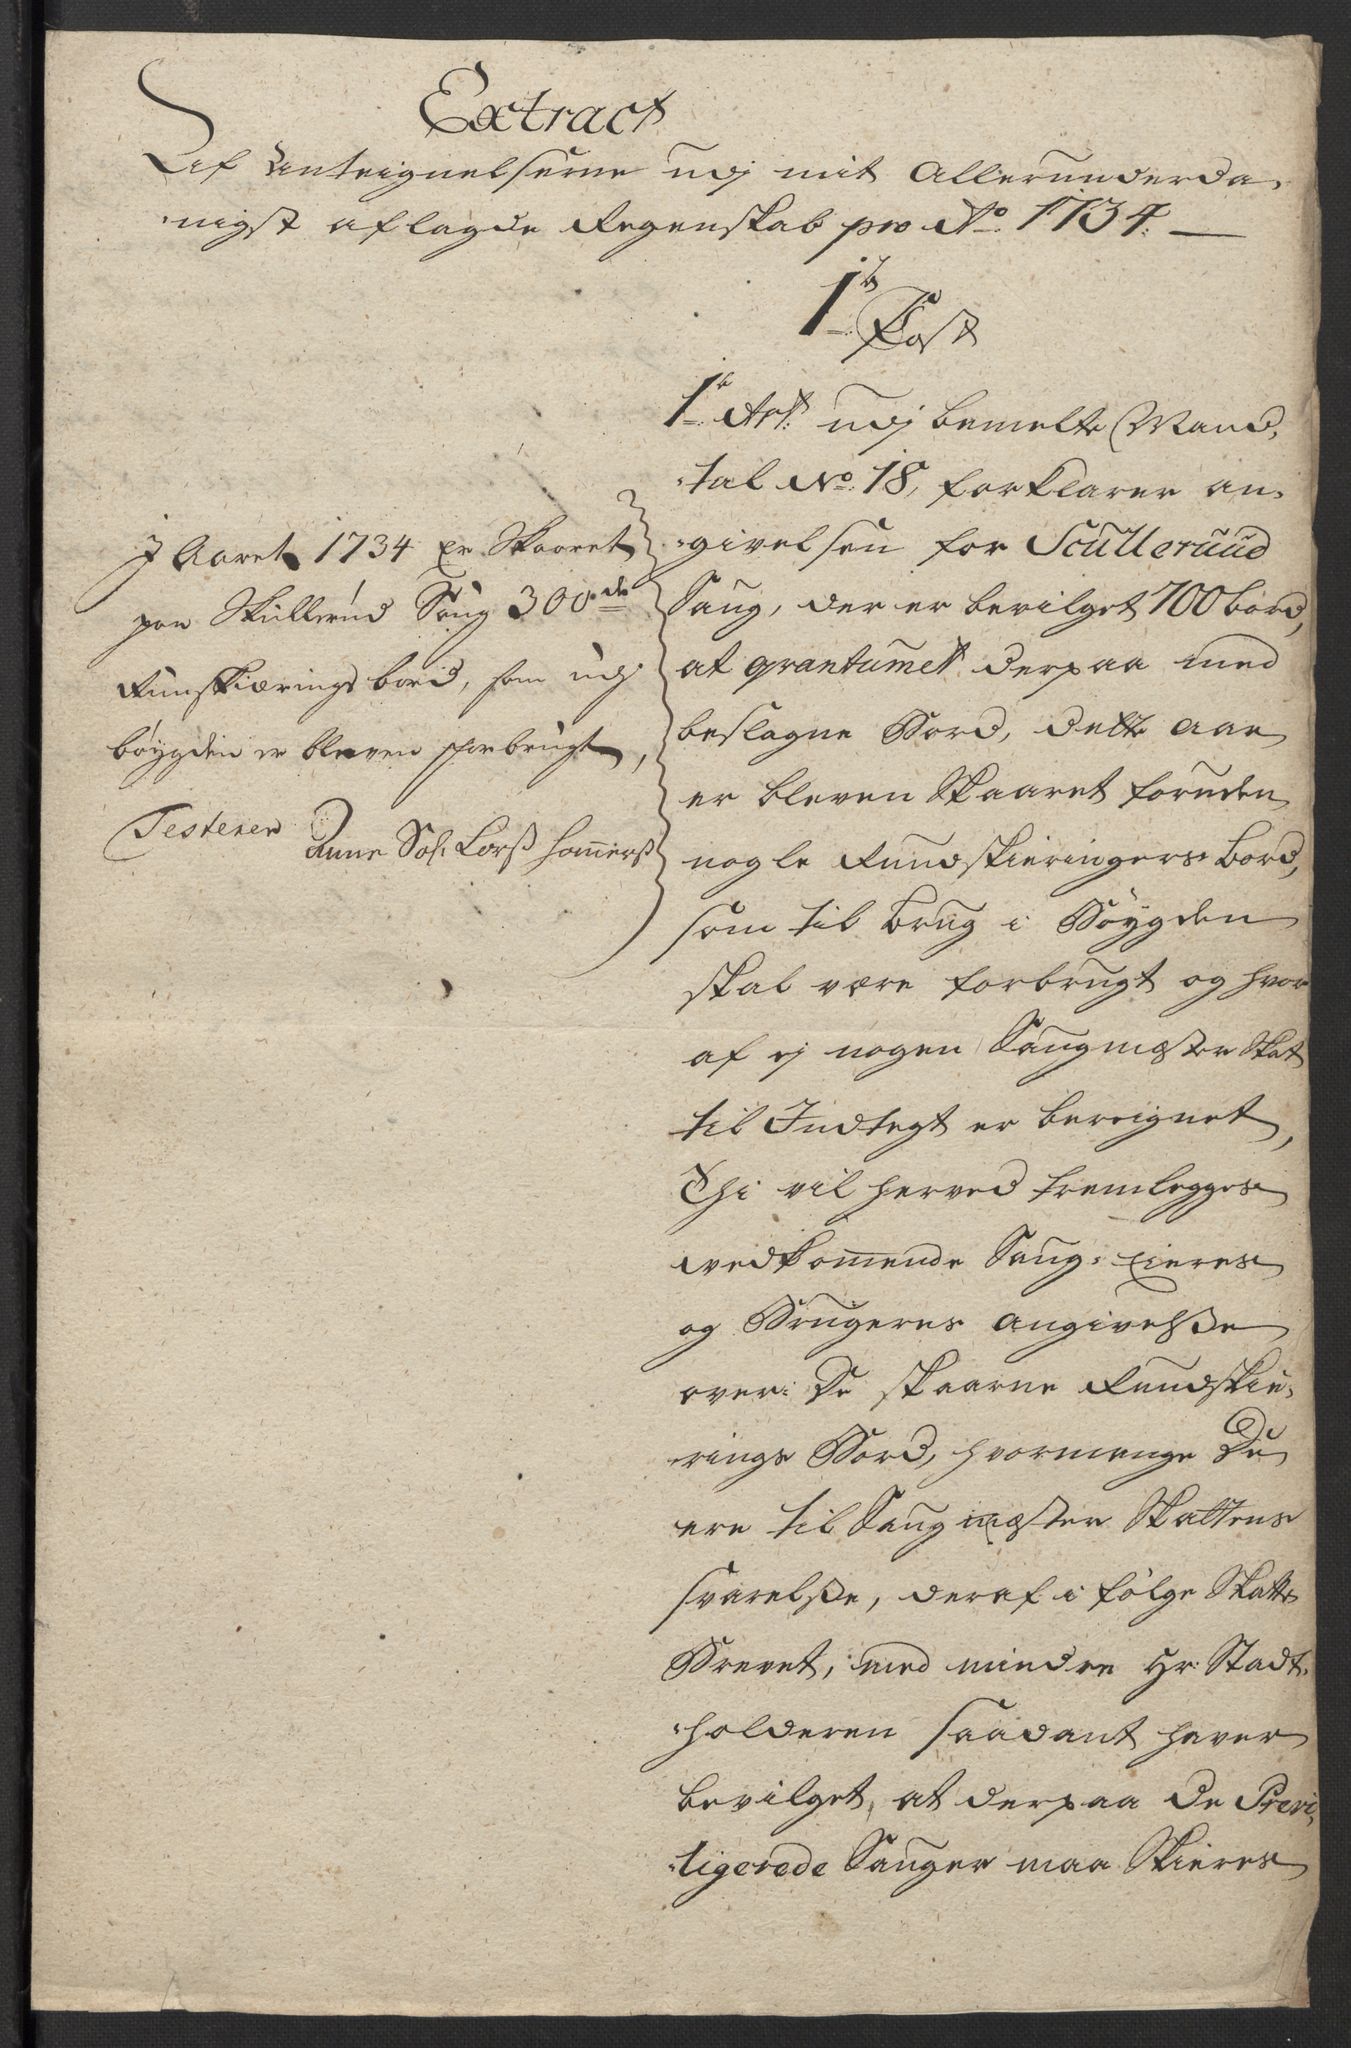 Extract
Af Anteignelserne udj mit Allerunderda-
nigst aflagde Regenskab pro Ao 1734.
1te Post
1te Art: udj bemelte Mand-
tal No 18, forklarer an-
givelsen for Sculleruud
Saug, der er bevilget 700 bord,
at qvantumet derpaa med
beslagne Bord, dette aar
er bleven Skaaret foruden
nogle Rundskieringers Bord,
som til brug i Bøygden
skal være forbrugt og hvor
af ej nogen Saugmester Skat
til Indtegt er bereignet,
Thi vil herved fremlegges
vedkommende Saug-Eieres
og Brugeres angivelsse
over De skaarne Rundskie-
rings Bord, hvormange De
ere til Saugmester Skattens
svarelsse, deraf i følge Skatte
Brevet, med mindre Hr: Stadt-
holderen saadant haver
bevilget, at derpaa De Previ-
ligerede Sauger maa Skieres
J Aaret 1734 er Skaaret
paa Skullerud Saug 300de
Runskierings bord, som udj
bøygden er bleven forbrugt,
Testerer
Anne Sal. Lars hammers